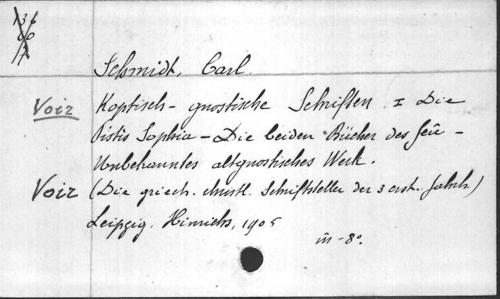 Schmidt, Carl.
Voir Koptisch - gnostische Schriften. I Die
Pistis Sophia - Die beiden Bücher des Jeû -
Unbekanntes altgnostisches Werk.
Voir (Die griech. christl. Schriftsteller der 3 erst. Jahrh.)
Leipzig. Hinrichs, 1905
in-8°.